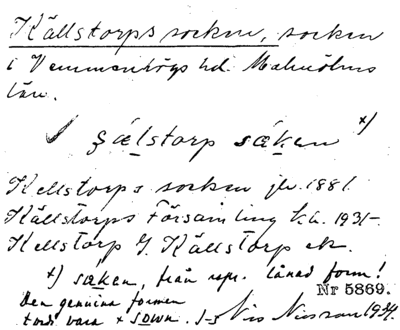 Källstorps socken, socken
i Vemmenhögs hd. Malmöhus
län.
ʃ çælstorp sɶken x)
Kellstorps socken jb. 1881.
Källstorps Församling k.a. 1931–.
Kellstorp l. Källstorp ek.
x) sɶken, från rspr. lånad form!
Den genuina formen
torde vara x sown.
Nr 5869.
Nils Nilsson 1934.